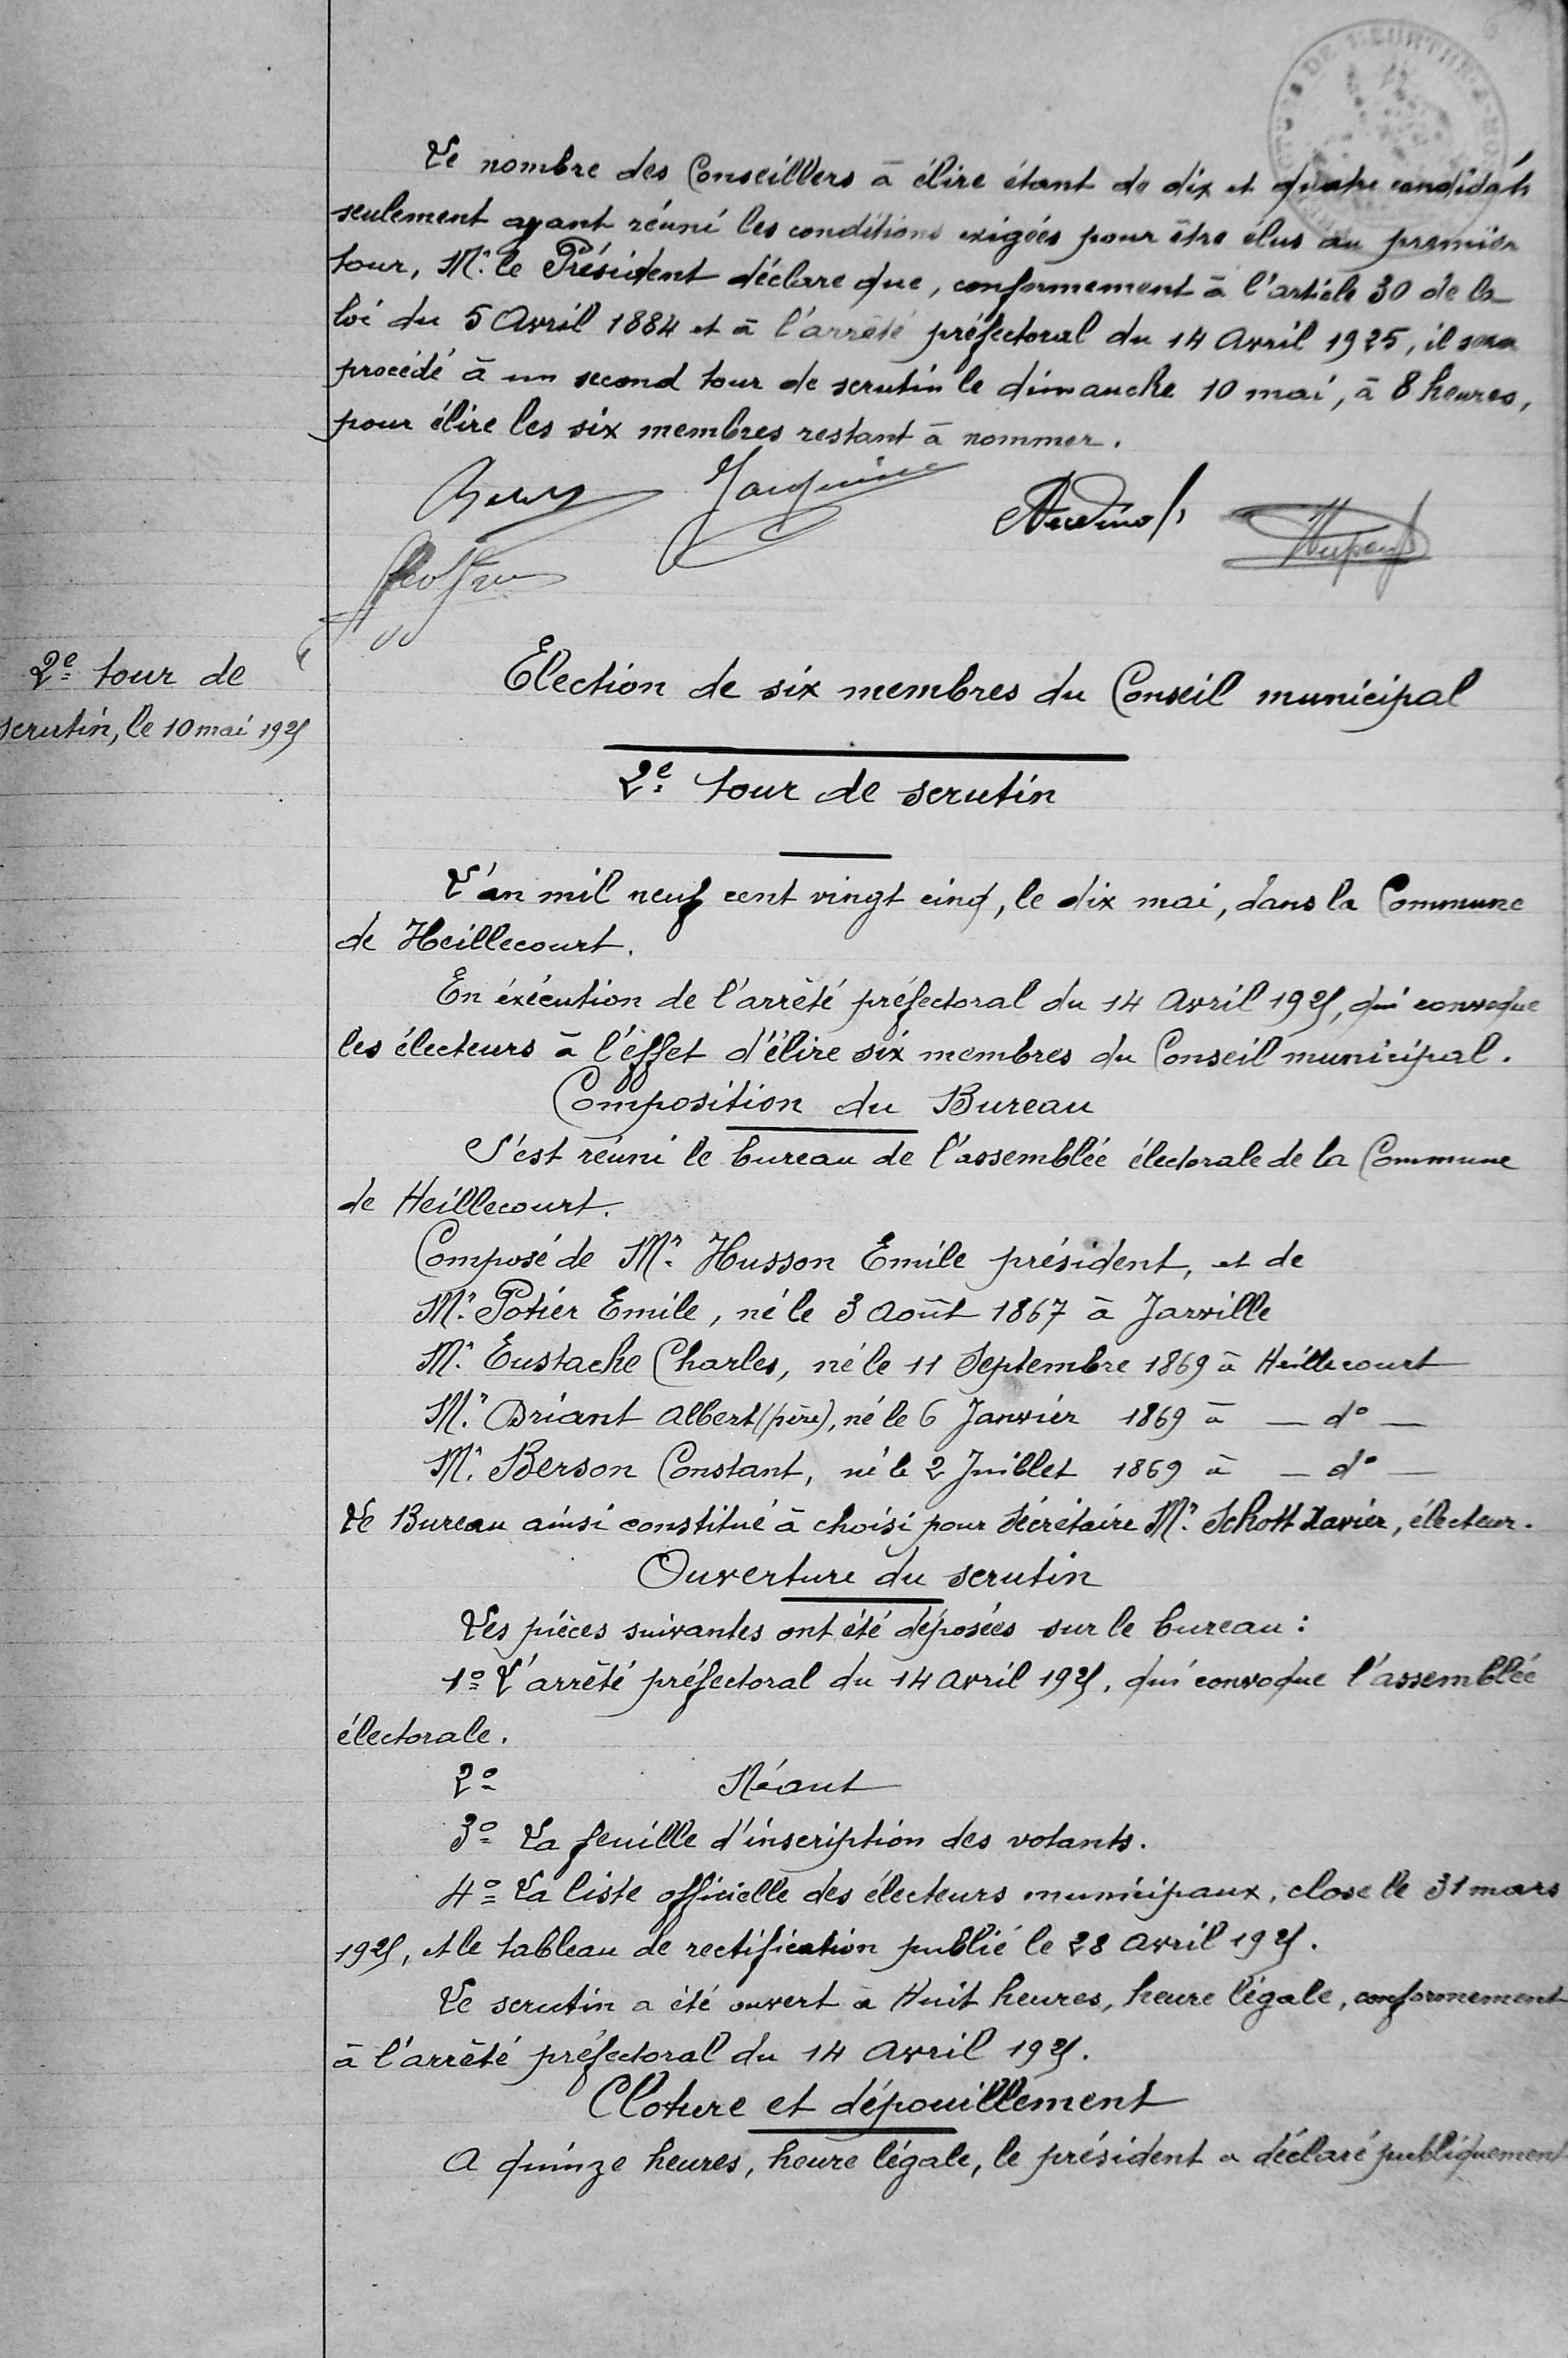 Le nombre des Conseillers à élire étant de dix et quatre candidats
seulement ayant réuni les conditions exigées pour être élus au premier
tour, Mr. le Président déclare que, conformement à l'article 30 de la
loi du 5 Avril 1884 et à l'arrêté préfectoral du 14 Avril 1925, il sera
procédé à un second tour de scrutin le dimanche 10 mai, à 8 heures,
pour élire les six membres restant à nommer.
2e tour de
scrutin, le 10 mai 1925
Election de six membres du Conseil municipal
2e tour de scrutin
L'an mil neuf cent vingt cinq, le dix mai, dans la Commune
de Heillecourt.
En éxécution de l'arrêté préfectoral du 14 Avril 1925, qui convoque
les électeurs à l'effet d'élire six membres du Conseil municipal.
Composition du Bureau
S'est réuni le bureau de l'assemblée électorale de la Commune
de Heillecourt.
Composé de Mr. Husson Emile président, et de
Mr. Potier Emile, né le 3 Août 1867 à Jarville
Mr. Eustache Charles, né le 11 Septembre 1869 à Heillecourt
Mr. Briant Albert (père), né le 6 Janvier 1869 à — do —
Mr. Berson Constant, né le 2 Juillet 1869 à — do —
Le Bureau ainsi constitué à choisi pour Sécrétaire Mr. Schott Xavier, électeur.
Ouverture du scrutin
Les pièces suivantes ont été déposées sur le bureau :
1o L'arrêté préfectoral du 14 Avril 1925, qui convoque l'assemblée
électorale.
2o Néant
3o La feuille d'inscription des votants.
4o La liste officielle des électeurs municipaux, close le 31 mars
1925, et le tableau de rectification publié le 28 Avril 1925.
Le scrutin a été ouvert à Huit heures, heure légale, conformement
à l'arrêté préfectoral du 14 Avril 1925.
Cloture et dépouillement
A quinze heures, heure légale, le président a déclaré publiquement